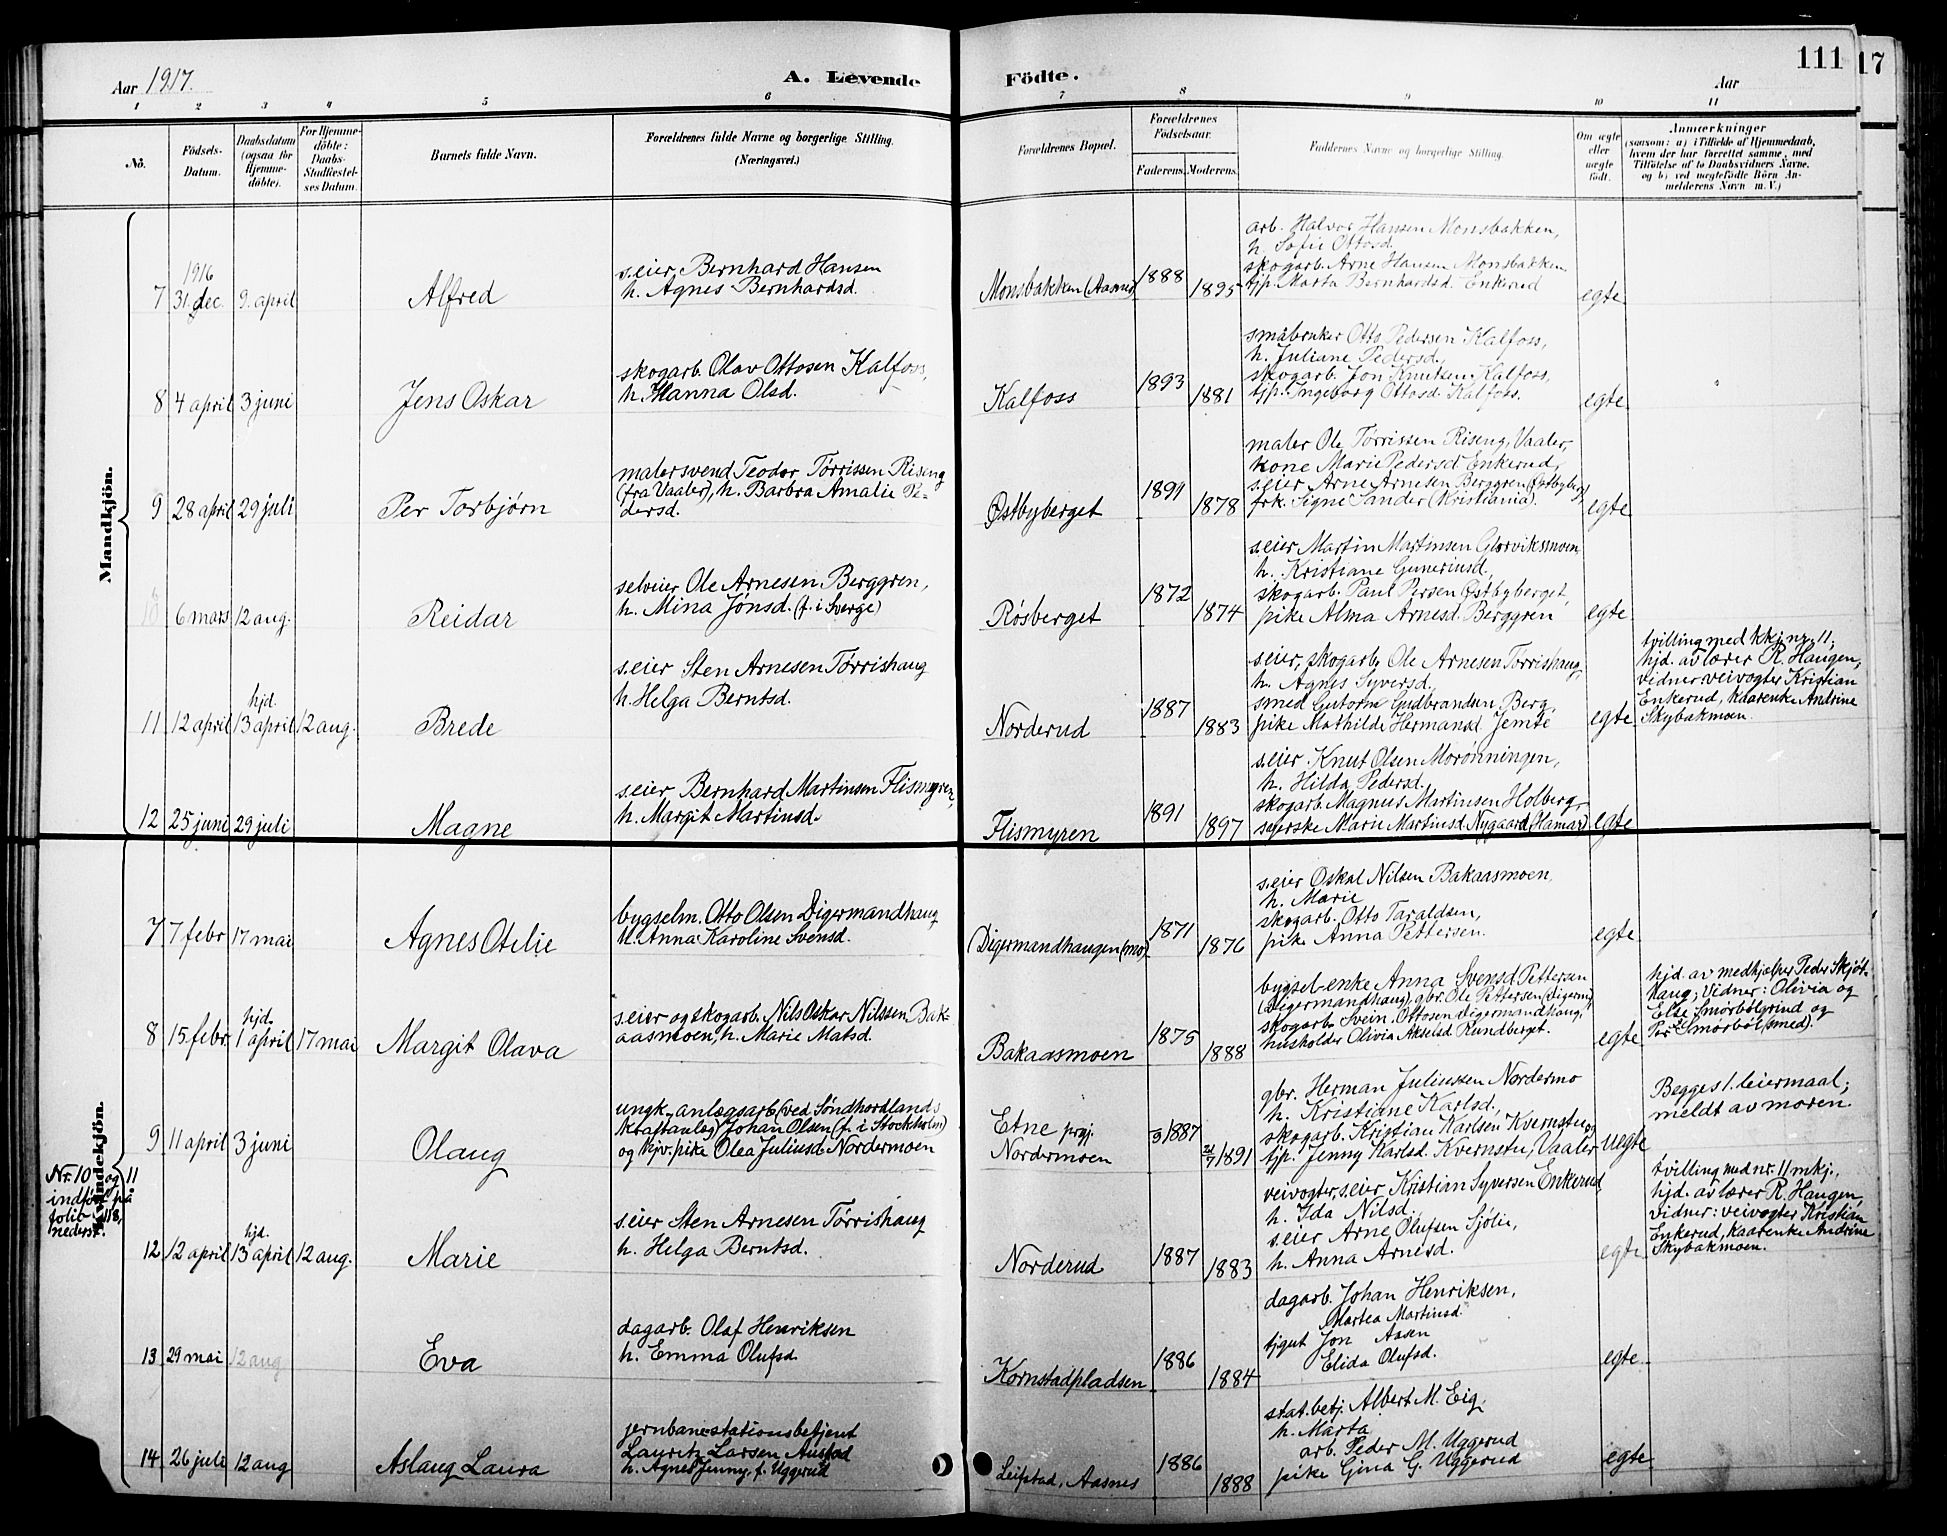 Aar 1917.
A. Levende
Födte.
Aar
111
17
1 2 3 4 5 6 7 8 9 10 11
No.
Födsels-
Datum.
Daabsdatum
(ogsaa for
Hjemme-
döbte).
For Hjemme-
döbte:
Daabs-
Stadfæstel-
ses Datum.
Barnets fulde Navn.
Forældrenes fulde Navne og borgerlige Stilling.
(Næringsvei.)
Forældrenes Bopæl.
Forældrenes
Födselsaar.
Faderens.
Moderens.
Faddernes Navne og borgerlige Stilling.
Om ægte
eller
uægte
födt.
Anmærkninger
(saasom: a) i Tilfælde af Hjemmedaab,
hvem der har forrettet samme, med
Tilföielse af to Daabsvidners Navne,
og b) ved uægtefödte Börn An-
melderens Navn m. V.)
Mandkjön.
7 1916 31 dec. 9. april
Alfred
s.eier Bernhard Hansen
h. Agnes Bernhardsd.
Monsbakken (Aasnes)
1888
1895
arb. Halvor Hansen Monsbakken,
h. Sofie Ottosd.
skogarb. Arne Hansen Monsbakken
tjp. Marta Bernhardsd. Enkerud
egte
8 4 april 3 juni
Jens Oskar
skogarb. Olav Ottosen Kalfoss,
h. Hanna Olsd.
Kalfoss
1893
1881
småbruker Otto Pedersen Kalfoss,
h. Juliane Pedersd.,
skogarb. Jon Knutsen Kalfoss,
tjp. Ingeborg Ottosd. Kalfoss.
egte
9 28 april 29 juli
Per Torbjørn
malersvend Teodor Tørrissen Riseng
(fra Vaaler), h. Barbra Amalie Pe-
dersd.
Østbyberget
1891
1878
maler Ole Tørrissen Riseng, Vaaler,
kone Marie Pedersd Enkerud,
s.eier Arne Arnesen Berggren (Østbyberg)
frk. Signe Sander (Kristiania).
egte
10 6 mars 12 aug.
Reidar
selveier Ole Arnesen Berggren,
h. Mina Jonsd. (f. i Sverge)
Røsberget
1872
1874
s.eier Martin Martinsen Glorviksmoen
h. Kristiane Guneriusd.,
skogarb. Paul Persen Østbyberget,
pike Alma Arnesd. Berggren
egte
11 12 april hjd. 13 april 12 aug.
Brede
s.eier Sten Arnesen Tørrishaug
h. Helga Berntsd.
Norderud
1887
1883
s.eier, skogarb. Ole Arnesen Tørrishaug,
h. Agnes Syversd.
smed Gutorm Gudbrandsen Berg,
pike Mathilde Hermansd. Jemte
egte
tvilling med kkj. nr. 11;
hjd. av lærer R. Haugen,
vidner veivogter Kristian
Enkerud, kaarenke Andrine
Skybakmoen.
12 25 juni 29 juli
Magne
s.eier Bernhard Martinsen Flismyren,
h. Margit Martinsd.
Flismyren
1891
1897
s.eier Knut Olsen Morønningen,
h. Hilda Pedersd.
skogarb. Magnus Martinsen Holberg,
syerske Marie Martinsd. Nygaard (Hamar)
egte
Kvindekjön.
7 7 febr 17 mai
Agnes Otelie
bygselm. Otto Olsen Digermandhaug
h. Anna Karoline Svensd.
Digermandhaugen (mo)
1871
1876
s.eier Oskal Nilsen Bakaasmoen,
h. Marie
skogarb. Otto Taraldsen,
pike Anna Pettersen.
egte
8 15 febr. hjd. 1 april 17 mai
Margit Olava
s.eier og skogarb. Nils Oskar Nilssen Bak-
aasmoen, h. Marie Matsd.
Bakaasmoen
1875
1888
bygsel-enke Anna Svensd. Pettersen
(Digermandhaug), gbr. Ole Pettersen (Digerm.)
skogarb. Svein Ottosen Digermandhaug,
husholder Olivia Akselsd Rundberget.
egte
hjd. av medhjælper Peder Skjøt-
haug; Vidner: Olivia og
Else Smørbølgrind og
Per Smørbøl (smed).
9 11 april 3 juni
Olaug
ungk. anlægsarb. (ved Søndhordlands
kraftanlæg) Johan Olsen (f. i Stockholm)
og hjv. pike Olea Juliusd. Nordermoen
Etne prgj.
Nordermoen
1887
1891
gbr. Herman Juliussen Nordermo
h. Kristiane Karlsd.,
skogarb. Kristian Karlsen Kvernstu og
tjp. Jenny Karlsd. Kvernstu, Vaaler
uegte
Begges 1. leiermaal;
meldt av moren.
Nr. 10 og 11
indført på
folio 118,
nederst.
12 12 april hjd. 13 april 12 aug.
Marie
s.eier Sten Arnesen Tørrishaug
h. Helga Berntsd.
Norderud
1887
1883
veivogter, s.eier Kristian Syversen Enkerud,
h. Ida Nilsd.,
s.eier Arne Olufsen Sjølie,
h. Anna Arnesd.
egte
tvilling med nr. 11 mkj.,
hjd. av lærer R. Haugen,
vidner: veivogter Kristian
Enkerud, kaarenke Andrine
Skybakmoen.
13 29 mai 12 aug
Eva
dagarb. Olaf Henriksen
h. Emma Olufsd.
Kornstadpladsen
1886
1884
dagarb. Johan Henriksen,
Martea Martinsd
tjgut Jon Aasen
Elida Olufsd.
egte
14 26 juli 12 aug
Aslaug Laura
jernbanestationsbetjent
Lauritz Larsen Austad
h. Agnes Jenny, f. Uggerud
Leipstad, Aasnes
1886
1888
stat.betj. Albert M. Eig,
h. Marta
arb. Peder M. Uggerud
pike Gina G. Uggerud
egte